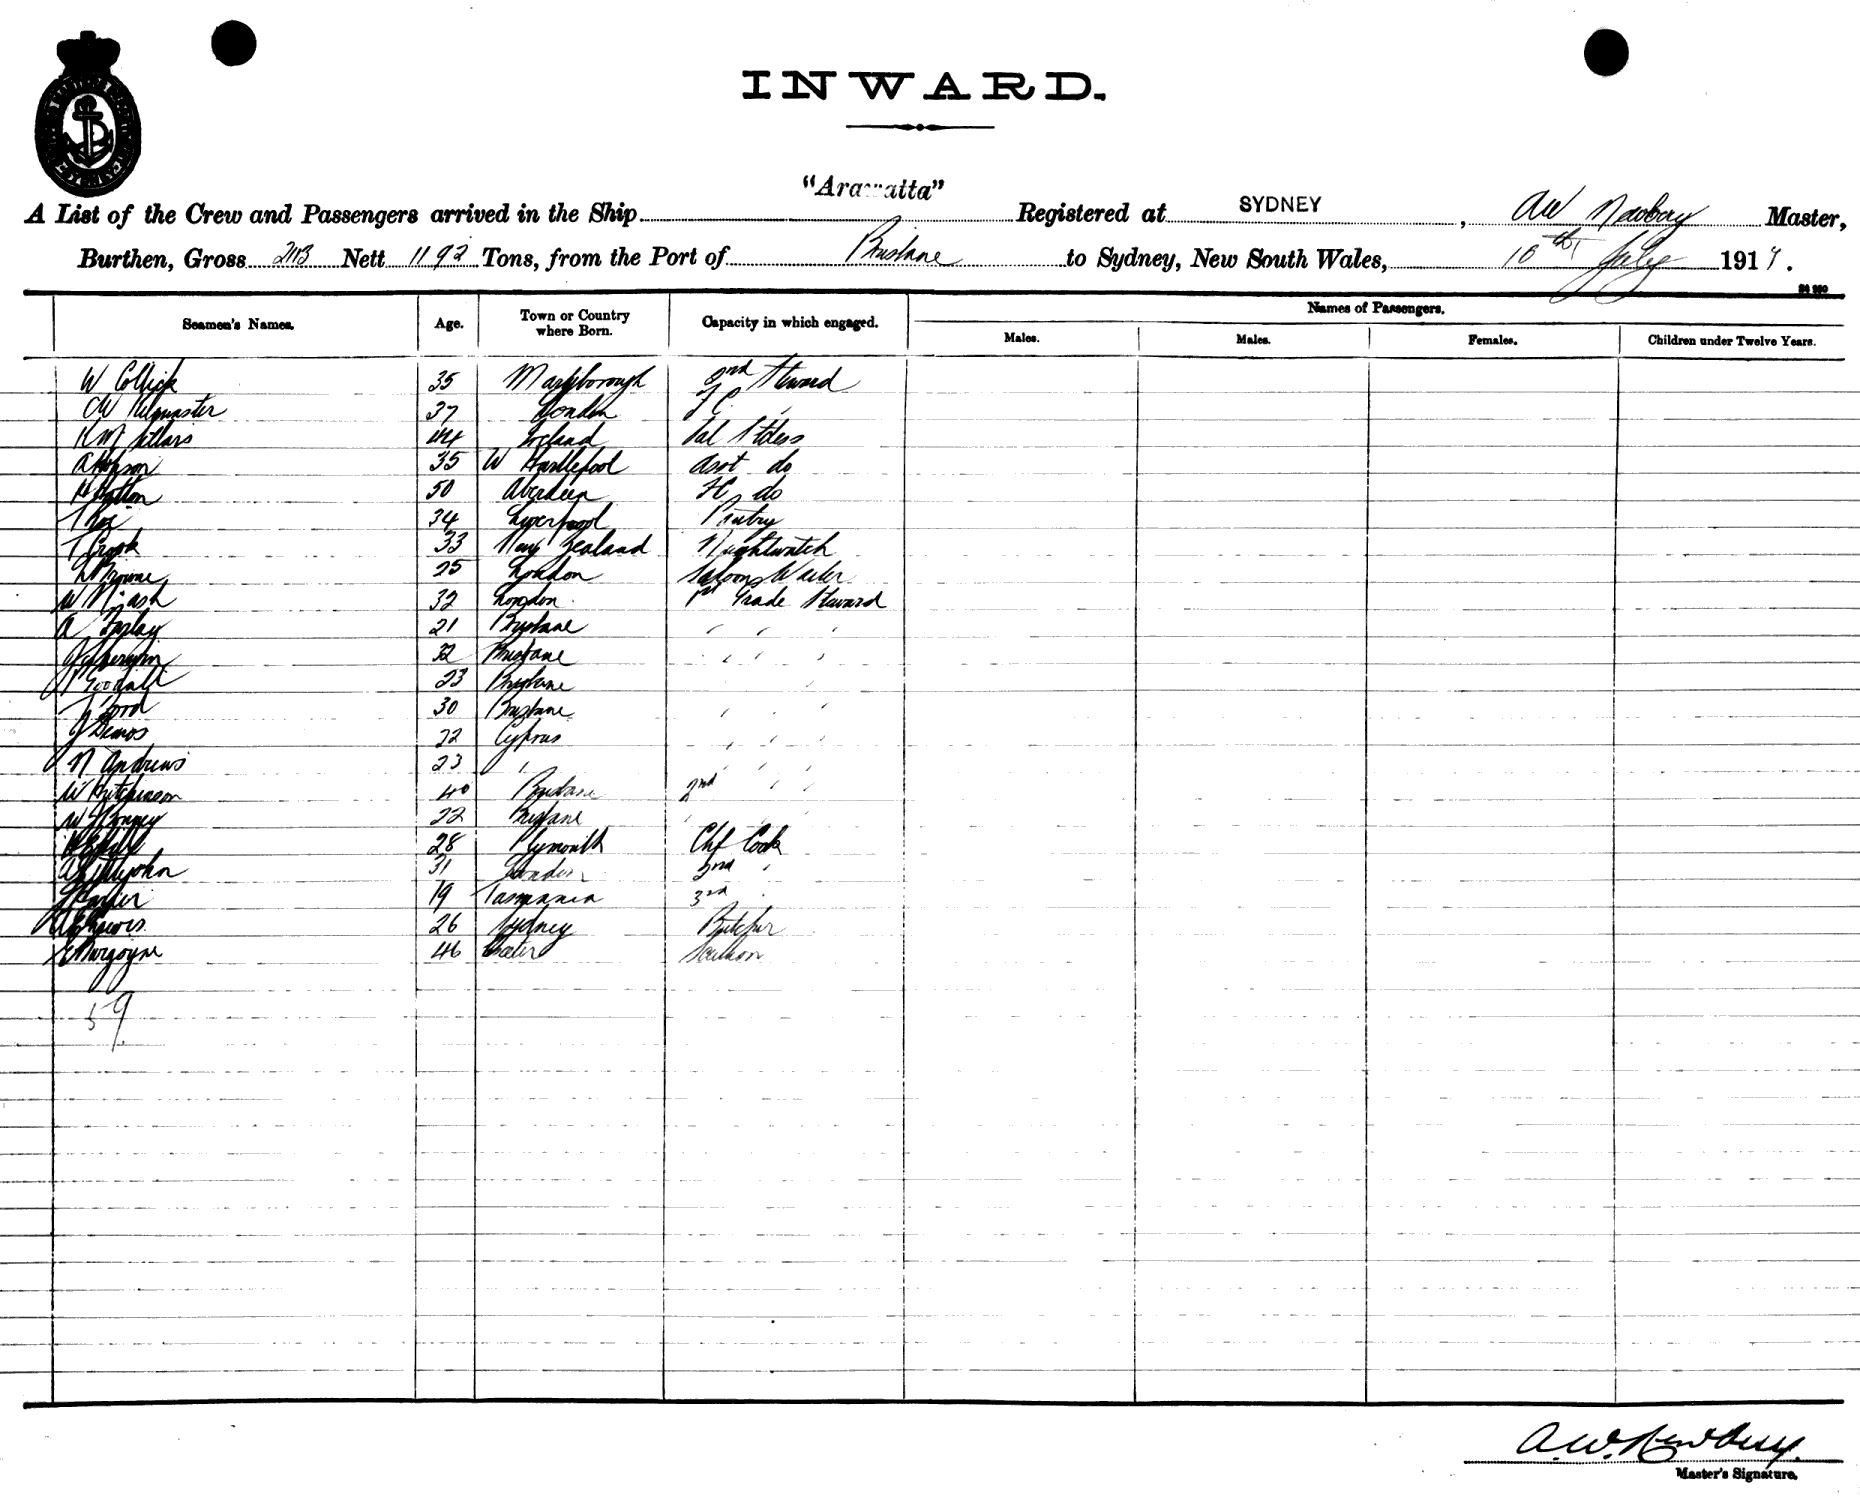 INWARD.
"Arawatta"
A List of the Crew and Passengers arrived in the Ship Registered at SYDNEY, AW Newbery Master,
Burthen, Gross 2113 Nett 1192 Tons, from the Port of Brisbane to Sydney, New South Wales, 10th July 191
Names of Passengers.
Seamen's Names. Age. Town or Country where Born. Capacity in which engaged. Males. Males. Females. Children under Twelve Years.
W Collick 35 Maryborough 2nd Steward
CW 37 London
44 Ireland
A Hopson 35 W Hartlepool Asst do
50 Aberdeen do
T Roe 34 Liverpool Pantry
T Crook 33 New Zealand Nightwatch
L Browne 25 London Saloon Waiter
W 32 London 1st Grade Steward
A 21 Brisbane " " "
32 Brisbane " " "
P Goodall 23 Brisbane " "
30 Brisbane " " "
J Demos 22 Cyprus " " "
N Andrews 23 " " " "
W Hutchinson 40 Brisbane 2nd " "
W 22 Brisbane " " "
28 Plymouth Chf Cook
A Littlejohn 31 London 2nd "
19 Tasmania 3rd "
Lewis 26 Sydney Butcher
E Burgoyne 46 Exeter Scullion
59
A.W. Newbery.
Master's Signature.